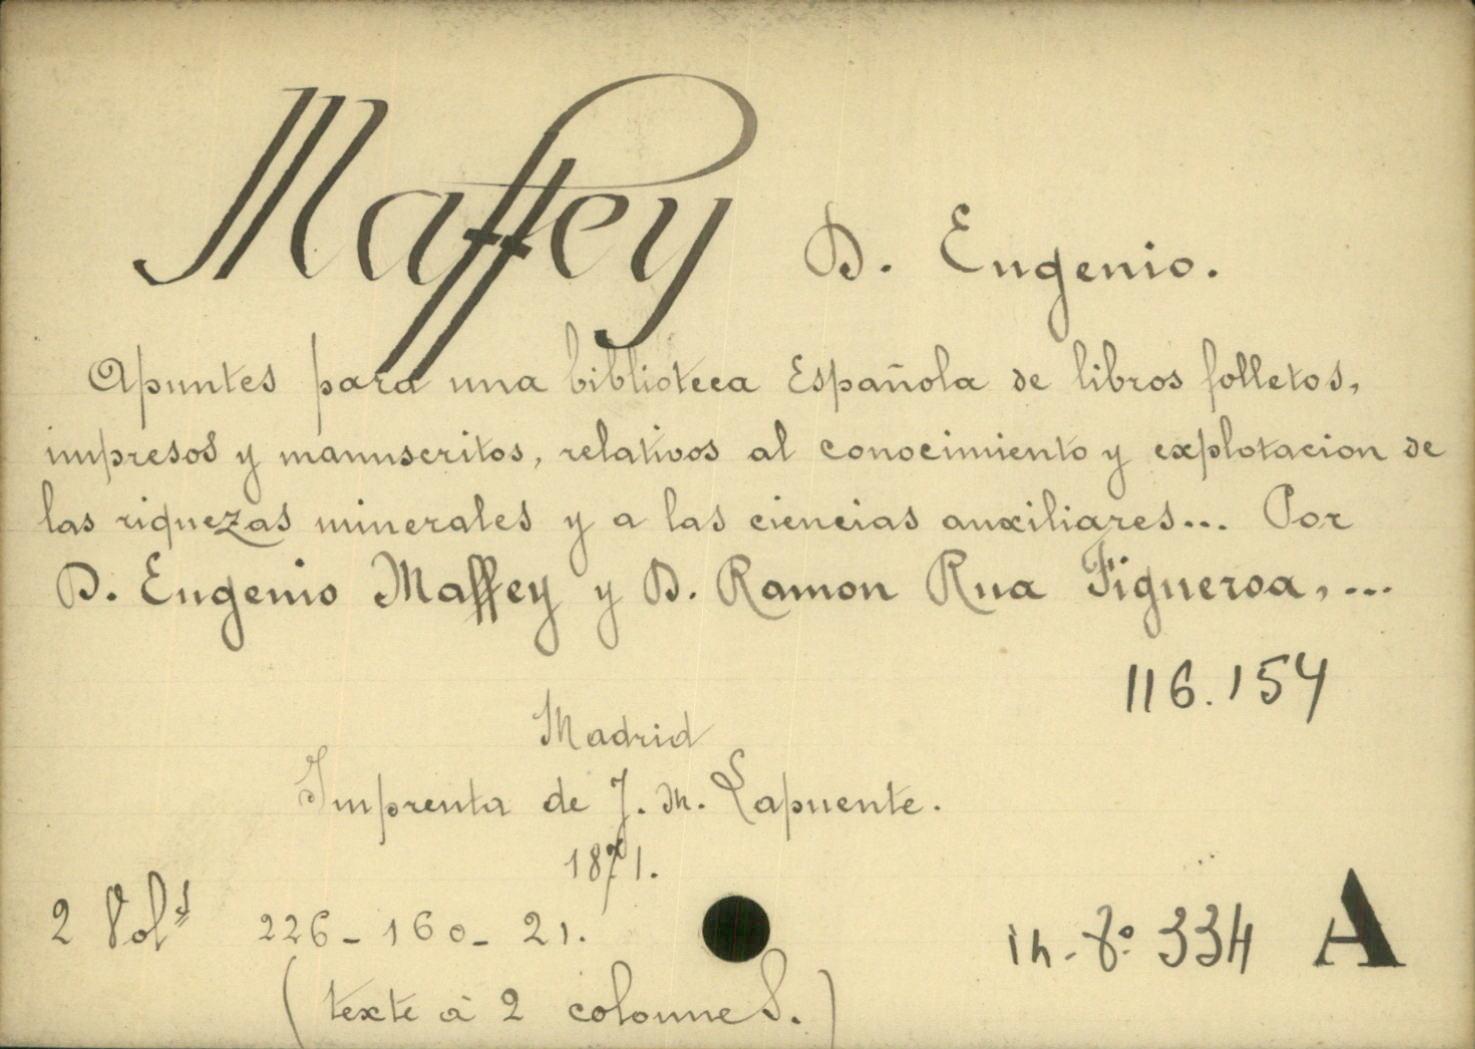 Maffey D. Eugenio.
Apuntes para una biblioteca Española de libros folletos,
impresos y manuscritos, relativos al conocimiento y explotacion de
las riquezas minerales y a las ciencias auxiliares... Por
D. Eugenio Maffey y D. Ramon Rua Figueroa, ...
116.154
Madrid
Imprenta de J. M. Lapuente.
1871.
2 Vols 226-160-21. in-8º 334 A
(texte à 2 colonnes.)